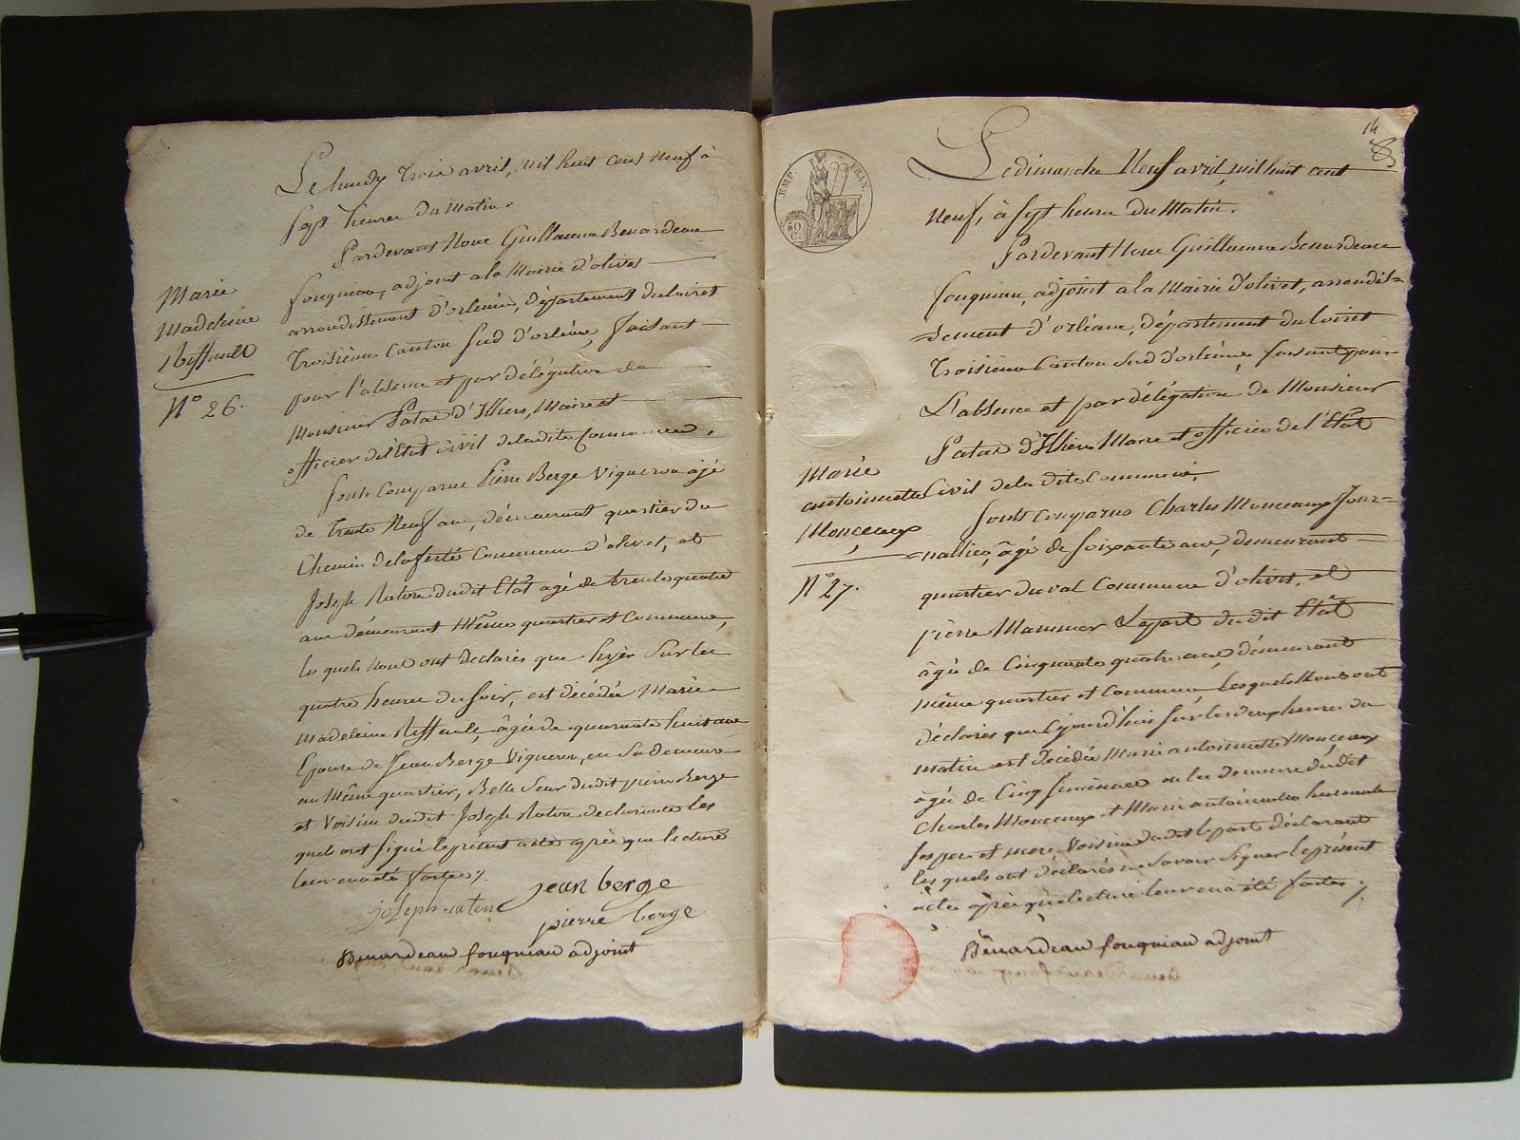 Le lundy trois avril, mil huit cent neuf à
sept heures du matin.
Pardevant Nous Guillaume Benardeau
fouqniau, adjoint a la Mairie d'olivet
arrondissement d'orléans, département du loiret
troisième Canton Sud d'orléans, faisant
pour l'absence et par délégation de
Monsieur Patas d'Illiers, Maire et
officier de l'Etat Civil de ladite Commune,
Marie
Madeleine
Riffault
N° 26.
sont Comparus Pierre Berge Vigneron agé
de trente Neuf ans, démeurant quartier du
Chemin de la ferté Commune d'olivet, et
Joseph Raton dudit Etat agé de trente quatre
ans démeurant même quartier et Commune,
les quels nous ont declarés que hyèr sur les
quatre heures du soir, est décédée Marie
Madeleine Riffault, âgée de quarante huit ans
Epouse de Jean Berge Vigneron, en sa demeure
au Même quartier, Belle Seur dudit pierre Berge
et Voisine dudit Joseph Raton declarants les
quels ont signé le présent acte après que lecture
leur en a été faite /.
jean berge
joseph raton
pierre berge
Benardeau fouqniau adjoint
14
EMP. FRAN.
50 C.
Le dimanche Neuf avril, mil huit cent
Neuf, à sept heures du Matin.
Pardevant Nous Guillaume Benardeau
fouqniau, adjoint a la Mairie d'olivet, arrondis=
=sement d'orléans, département du loiret
troisième Canton Sud d'orléans, faisant pour
L'absence et par délégation de Monsieur
Patas d'Illiers Maire et officier de l'Etat
Civil de la dite Commune,
Marie
antoinette
Monceaux
N° 27.
sonts Comparus Charles Monceaux Jour=
=nallier, âgé de soixante ans, demeurant
quartier du val Commune d'olivet, et
pierre Mammer Lepart du dit Etat
âgé de Cinquante quatre ans, démeurant
même quartier et Commune, Lesquels Nous ont
déclarés que cejourd'hui sur les deux heures du
matin est décédée Marie antoinette Monceaux
âgée de Cinq semaines en la demeure dudit
Charles Monceaux et Marie antoinette
ses pere et mere, Voisine dudit lepart déclarant
les quels ont déclarés ne savoir signer le présent
acte après que lecture leur en a été faite /.
Bénardeau fouqniau adjoint